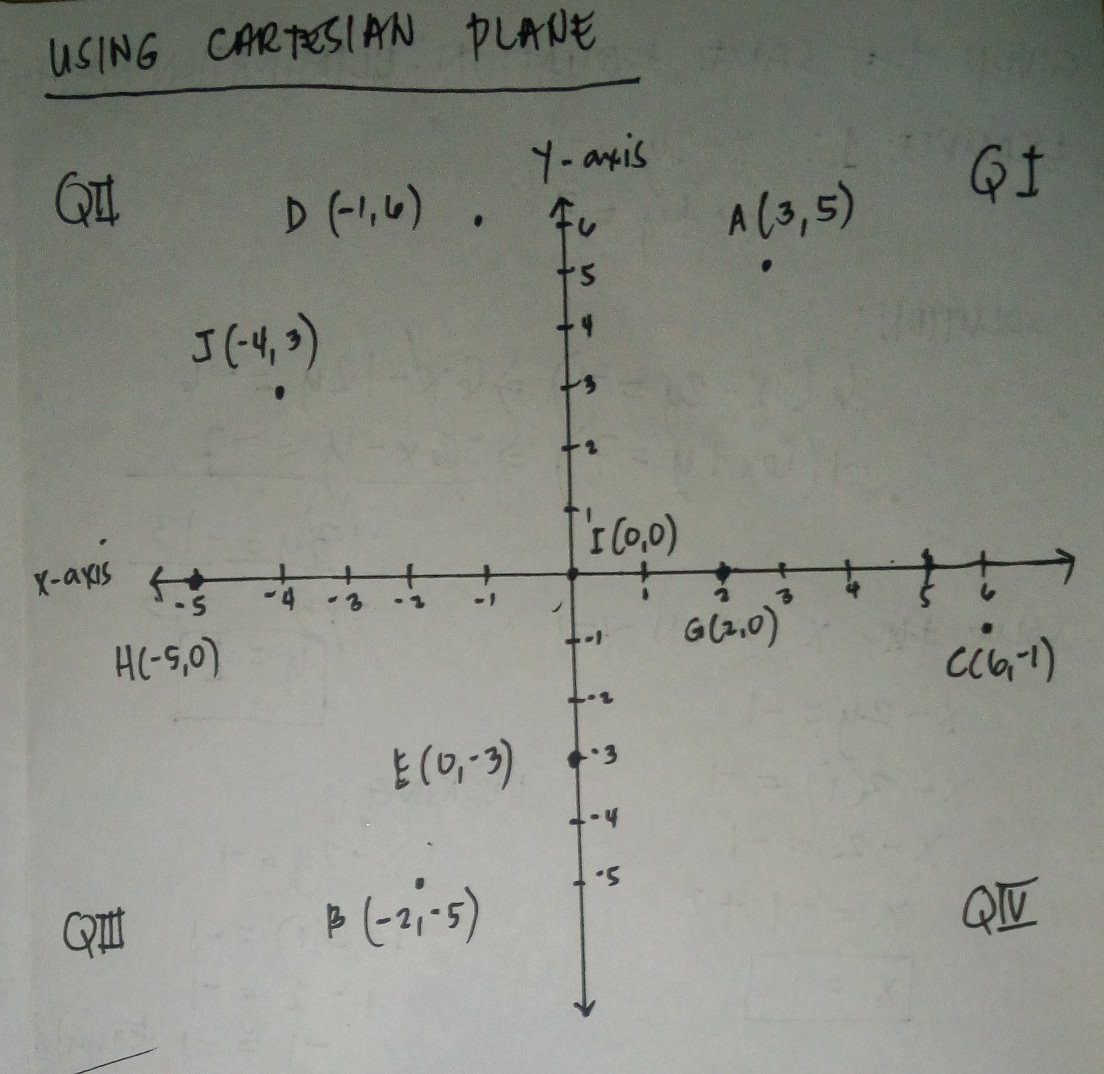 USING CARTESIAN PLANE
Y-axis
QII
D (-1,6)
A(3,5)
QI
6
5
J(-4,3)
4
3
2
1
I(0,0)
x-axis
-5 -4 -3 -2 -1 1 2 3 4 5 6
H(-5,0)
-1
G(2,0)
C(6,-1)
-2
E(0,-3)
-3
-4
-5
QIII
B (-2,-5)
QIV